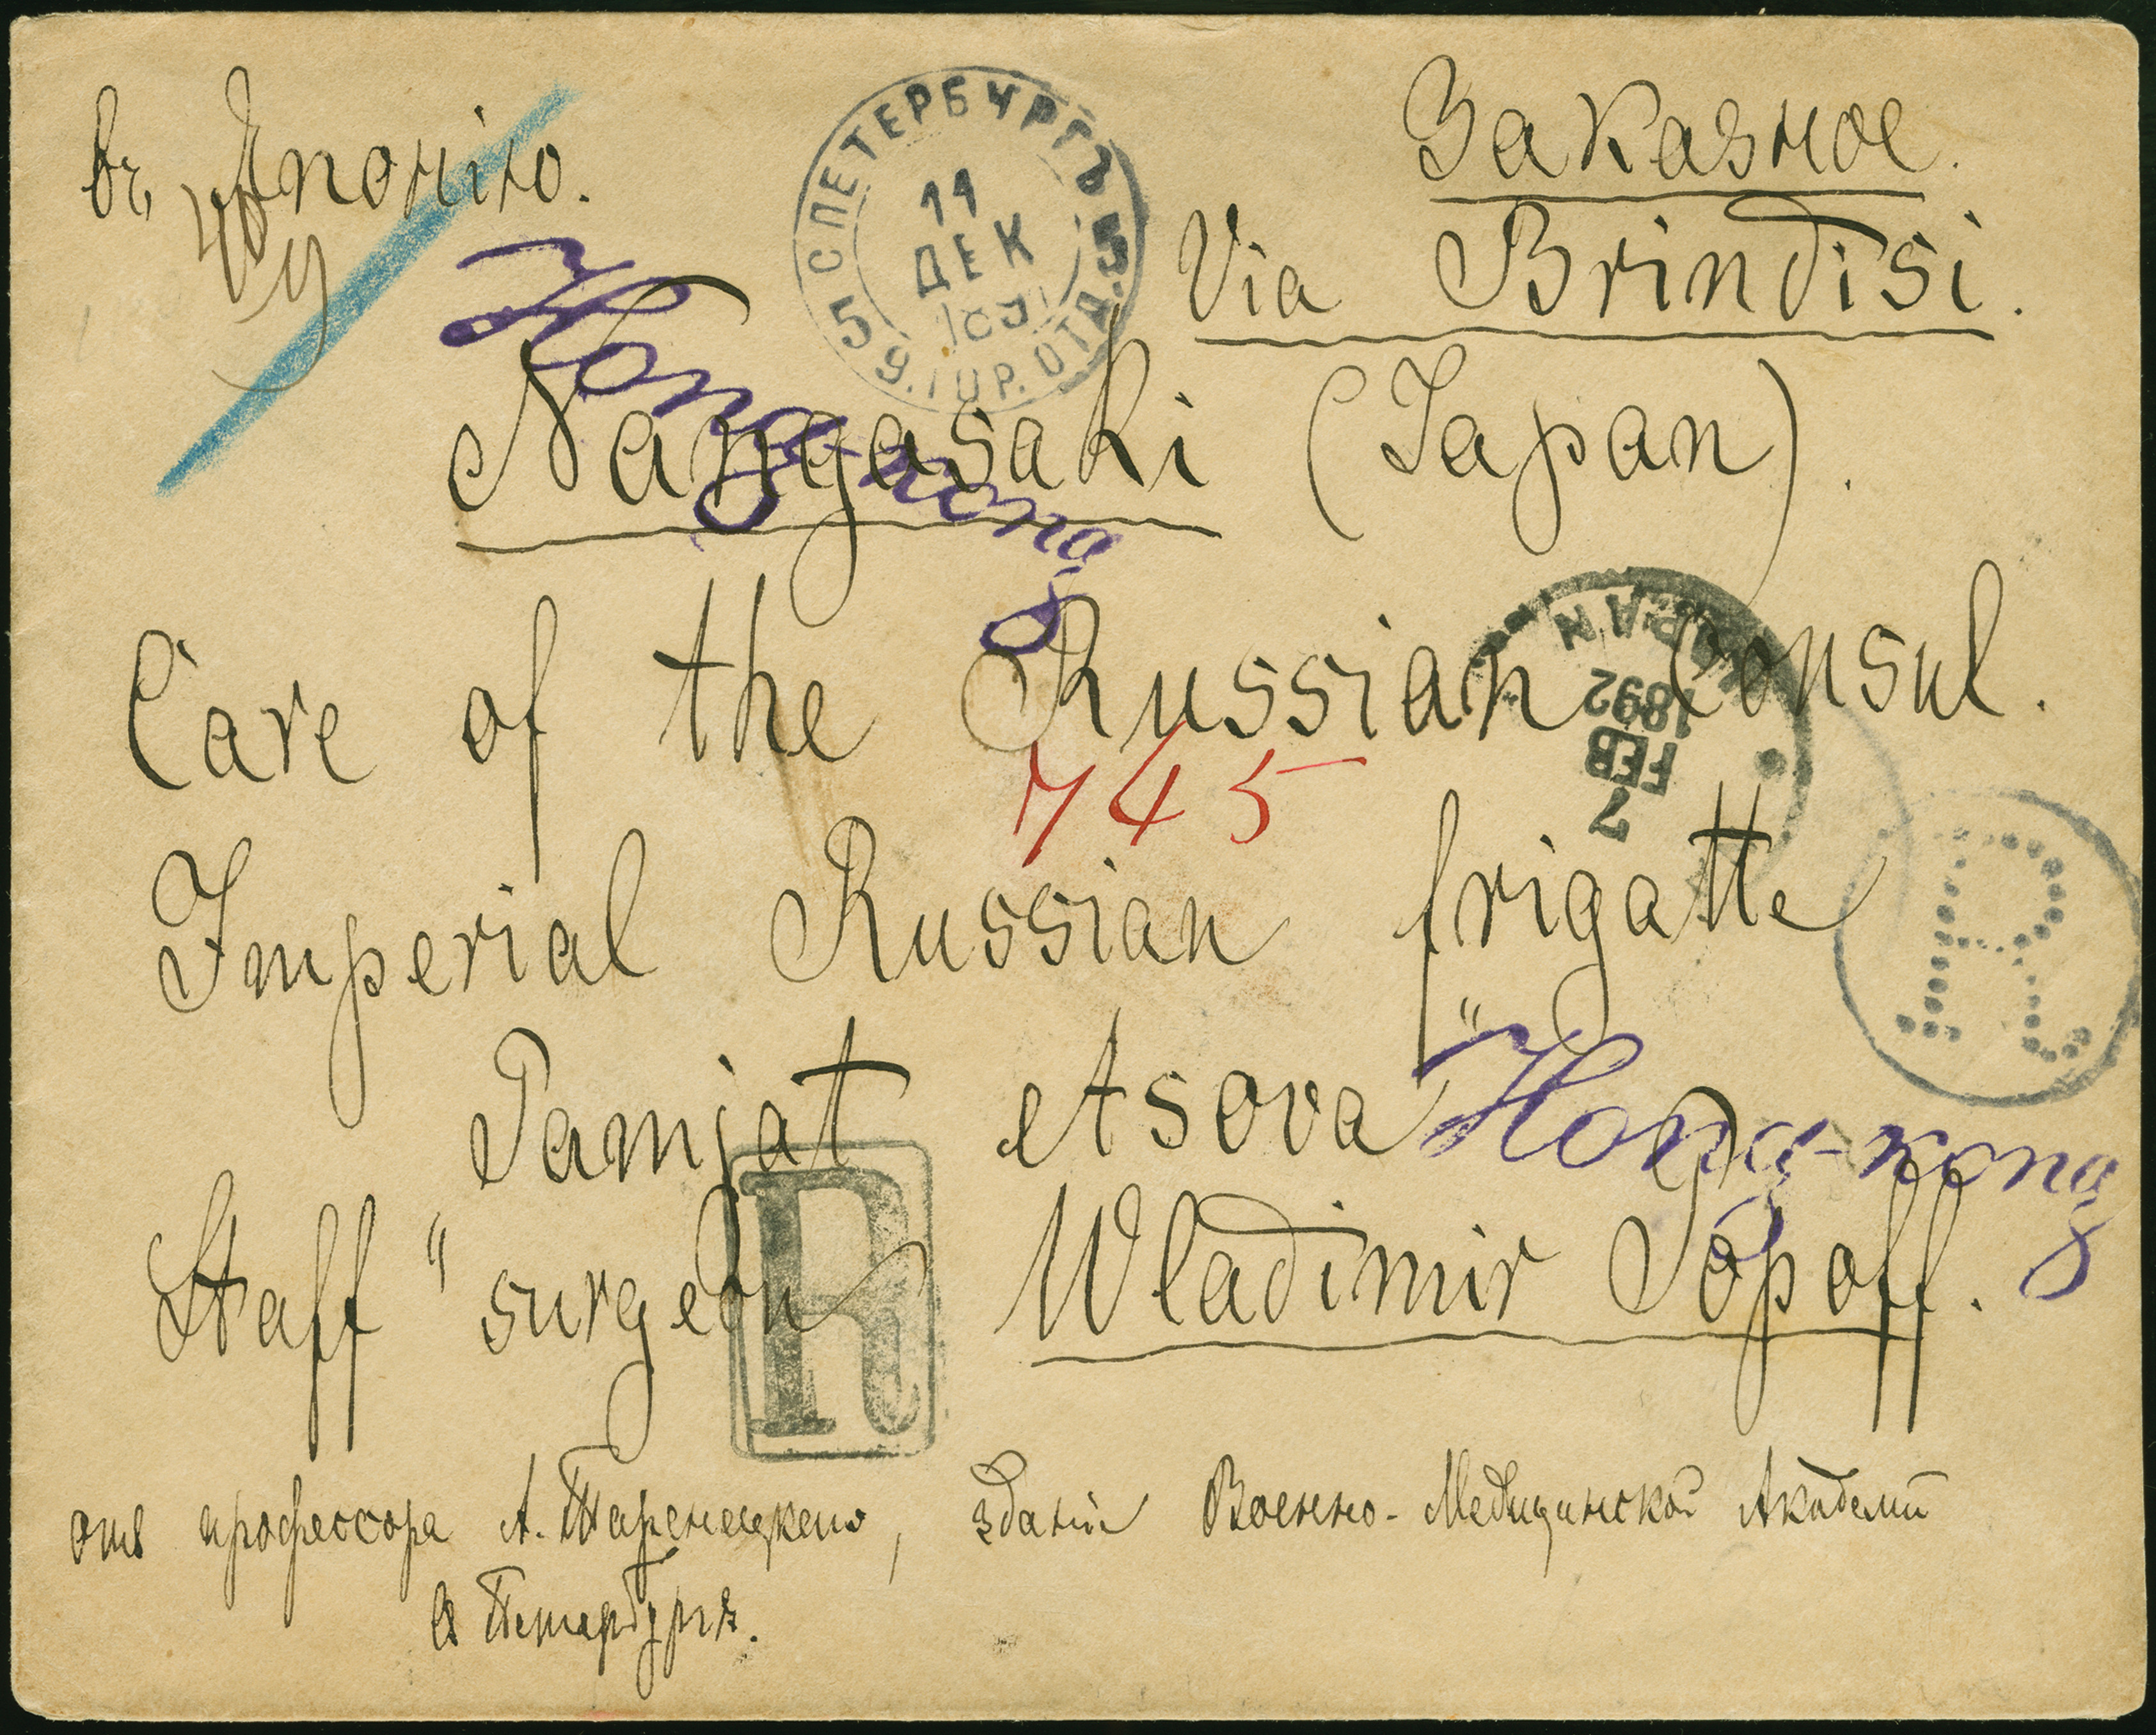 въ Японію.
Заказное.
Via Brindisi.
С ПЕТЕРБУРГЪ 5
11
ДЕК
5 9. ГОР. ОТД. 5
Hong-kong
Nangasaki (Japan).
Care of the Russian Consul.
JAPAN
1892
FEB
7
745
R
Imperial Russian frigatte
"Pamjat Asova"
Hong-kong
Staff surgeon Wladimir Popoff.
R
отъ профессора А. Таренецкаго, зданіе Военно-Медицинской Академіи
С Петербургъ.